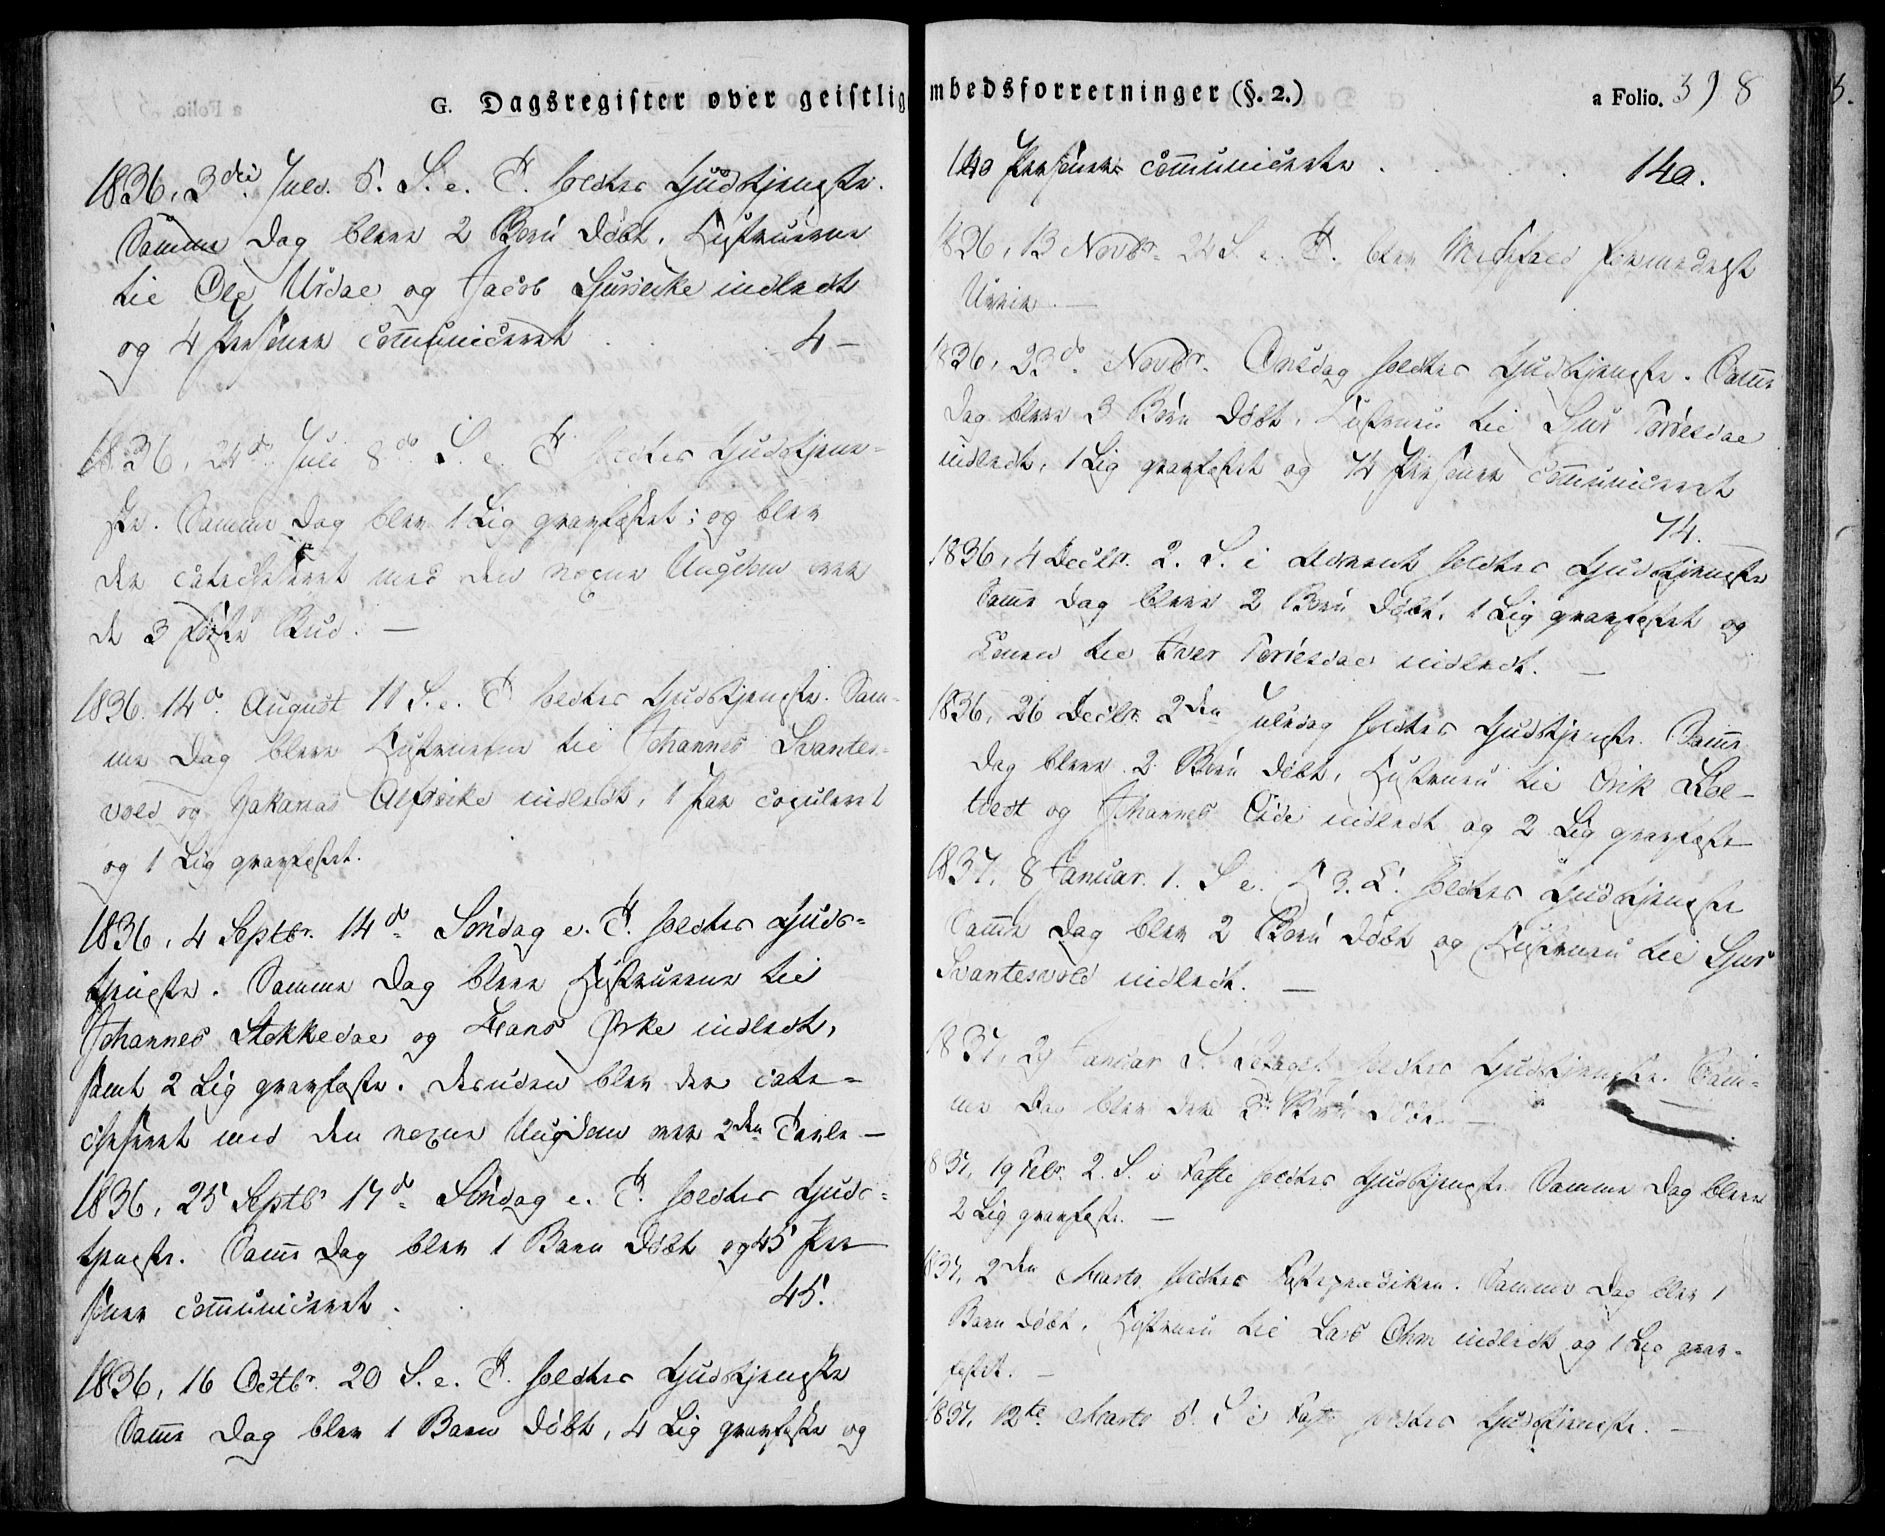 G. Dagsregister over geistlig
1836, 3die Juli. 5. S. e. T. holdtes Gudstjeneste.
Samme Dag bleve 2 Børn døbt, Hustruerne
til Ole Urdal og Jacob indledt
og 4 Personer communiceret 4 –
1836, 24de Juli 8de S. e. T. holdtes Gudstjene-
ste. Samme Dag blev 1 Lig gravfæstet; og blev
der catechiseret med den voxne Ungdom over
de 3 første Bud. —
1836. 14de August 11 S. e. T. holdtes Gudstjeneste. Sam-
me Dag bleve Hustruerne til Johannes Svantes-
vold og Zakarias indledt, 1 Par copuleret
og 1 Lig gravfæstet.
1836, 4 Septbr. 14de Søndag e. T. holdtes Guds-
tjeneste. Samme Dag bleve Hustruerne til
Johannes Stokkedal og Hans Ørke indledt,
samt 2 Lig gravfæste. Desuden blev der cate-
chiseret med den voxne Ungdom over 2den Parle —
1836, 25 Septbr 17de Søndag e. T. holdtes Guds-
tjeneste. Samme Dag blev 1 Barn døbt og 45 Per
soner communiceret 45.
1836, 16 Octbr. 20 S. e. T. holdtes Gudstjeneste
Samme Dag blev 1 Barn døbt, 4 Lig gravfæste og
mbedsforretninger (§. 2.)
a Folio. 398
140 Personer communicerte 140.
1836, 13 Novbr. 24 S. e. T. blev Messefald formedelst
Uveir. —
1836, 23de Novbr. Onsdag holdtes Gudstjeneste. Samme
Dag bleve 3 Børn døbt, Hustruen til Sjur Torlesdal
indledt, 1 Lig gravfæstet og 74 Personer communiceret
74.
1836, 4 Decbr. 2. S. i Advent holdtes Gudstjeneste
Samme Dag bleve 2 Børn døbt, 1 Lig gravfæstet og
Konen til Iver Torlesdal indledt. —
1836, 26 Decbr. 2den Juledag holdtes Gudstjeneste. Samme
Dag bleve 2 Børn døbt, Hustruen til Erik
og Johannes Eide indledt og 2 Lig gravfæste
1837, 8 Januar. 1. S e. H. 3. K. holdtes Gudstjeneste
Samme Dag blev 2 Børn døbt og Hustruen til Sjur
Svantesvold indledt. —
1837, 29 Januar S. holdtes Gudstjeneste. Sam-
me Dag blev der 3 Børn døbt. —
1837, 19 Febr. 2. S. i Faste holdtes Gudstjeneste. Samme Dag bleve
2 Lig gravfæste. —
1837, 2den Marts holdtes Fasteprædiken. Samme Dag blev 1
Barn døbt, Hustruen til Lars indledt og 1 Lig grav-
fæstet. —
1837, 12te Marts 5. S i Faste holdtes Gudstjeneste. —